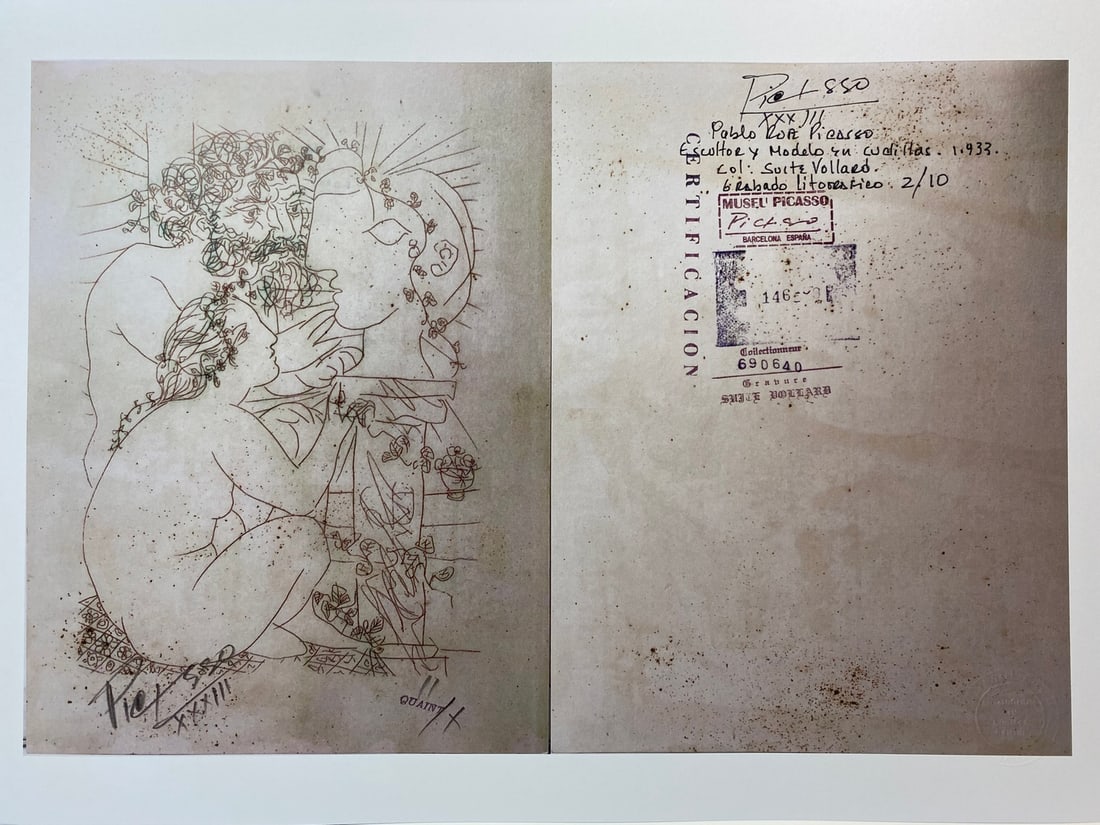 Picasso
XXXIII
QUAINT
II/X
Picasso
XXXIII
Pablo Ruiz Picasso
Escultor y Modelo en cuclillas. 1.933.
Col: Suite Vollard.
Grabado litografico. 2/10
CERTIFICACION
MUSEU PiCASSO
Picasso
BARCELONA ESPAÑA
Collectionneur
690640
Gravure
SUITE VOLLARD